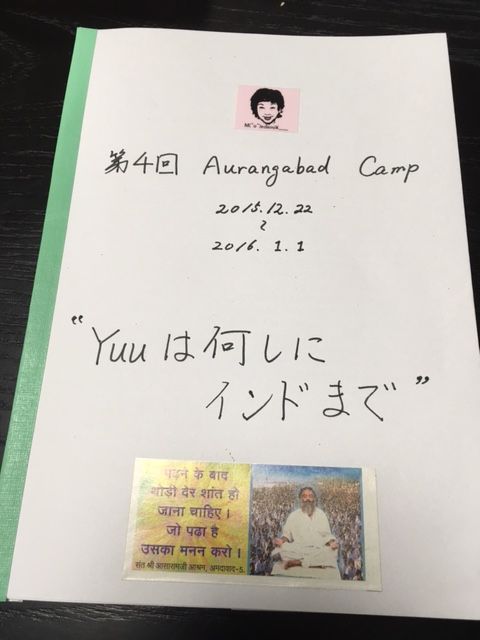 第4回 Aurangabad Camp
2015.12.22
～
2016.1.1
"Yuuは何しに
インドまで"
पढ़ने के बाद
थोड़ी देर शांत हो
जाना चाहिए ।
जो पढा है
उसका मनन करो ।
संत श्री आसारामजी आश्रम, अमदावाद-5.